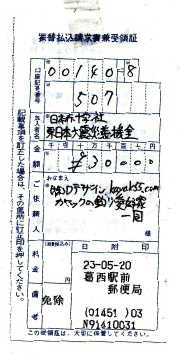 振替払込請求書兼受領証
口座記号番号
00140-8
507
加入者名
日本赤十字社
東日本大震災義援金
金額
千 百 十 万 千 百 十 円
¥30000
ご依頼人
おなまえ
kayak55.com
カヤックの釣り愛好家
一同
料金
備考
免除
日附印
23-05-20
葛西駅前
郵便局
(01451)03
N91610031
記載事項を訂正した場合は、その箇所に訂正印を押してください。
この受領証は、大切に保管してください。